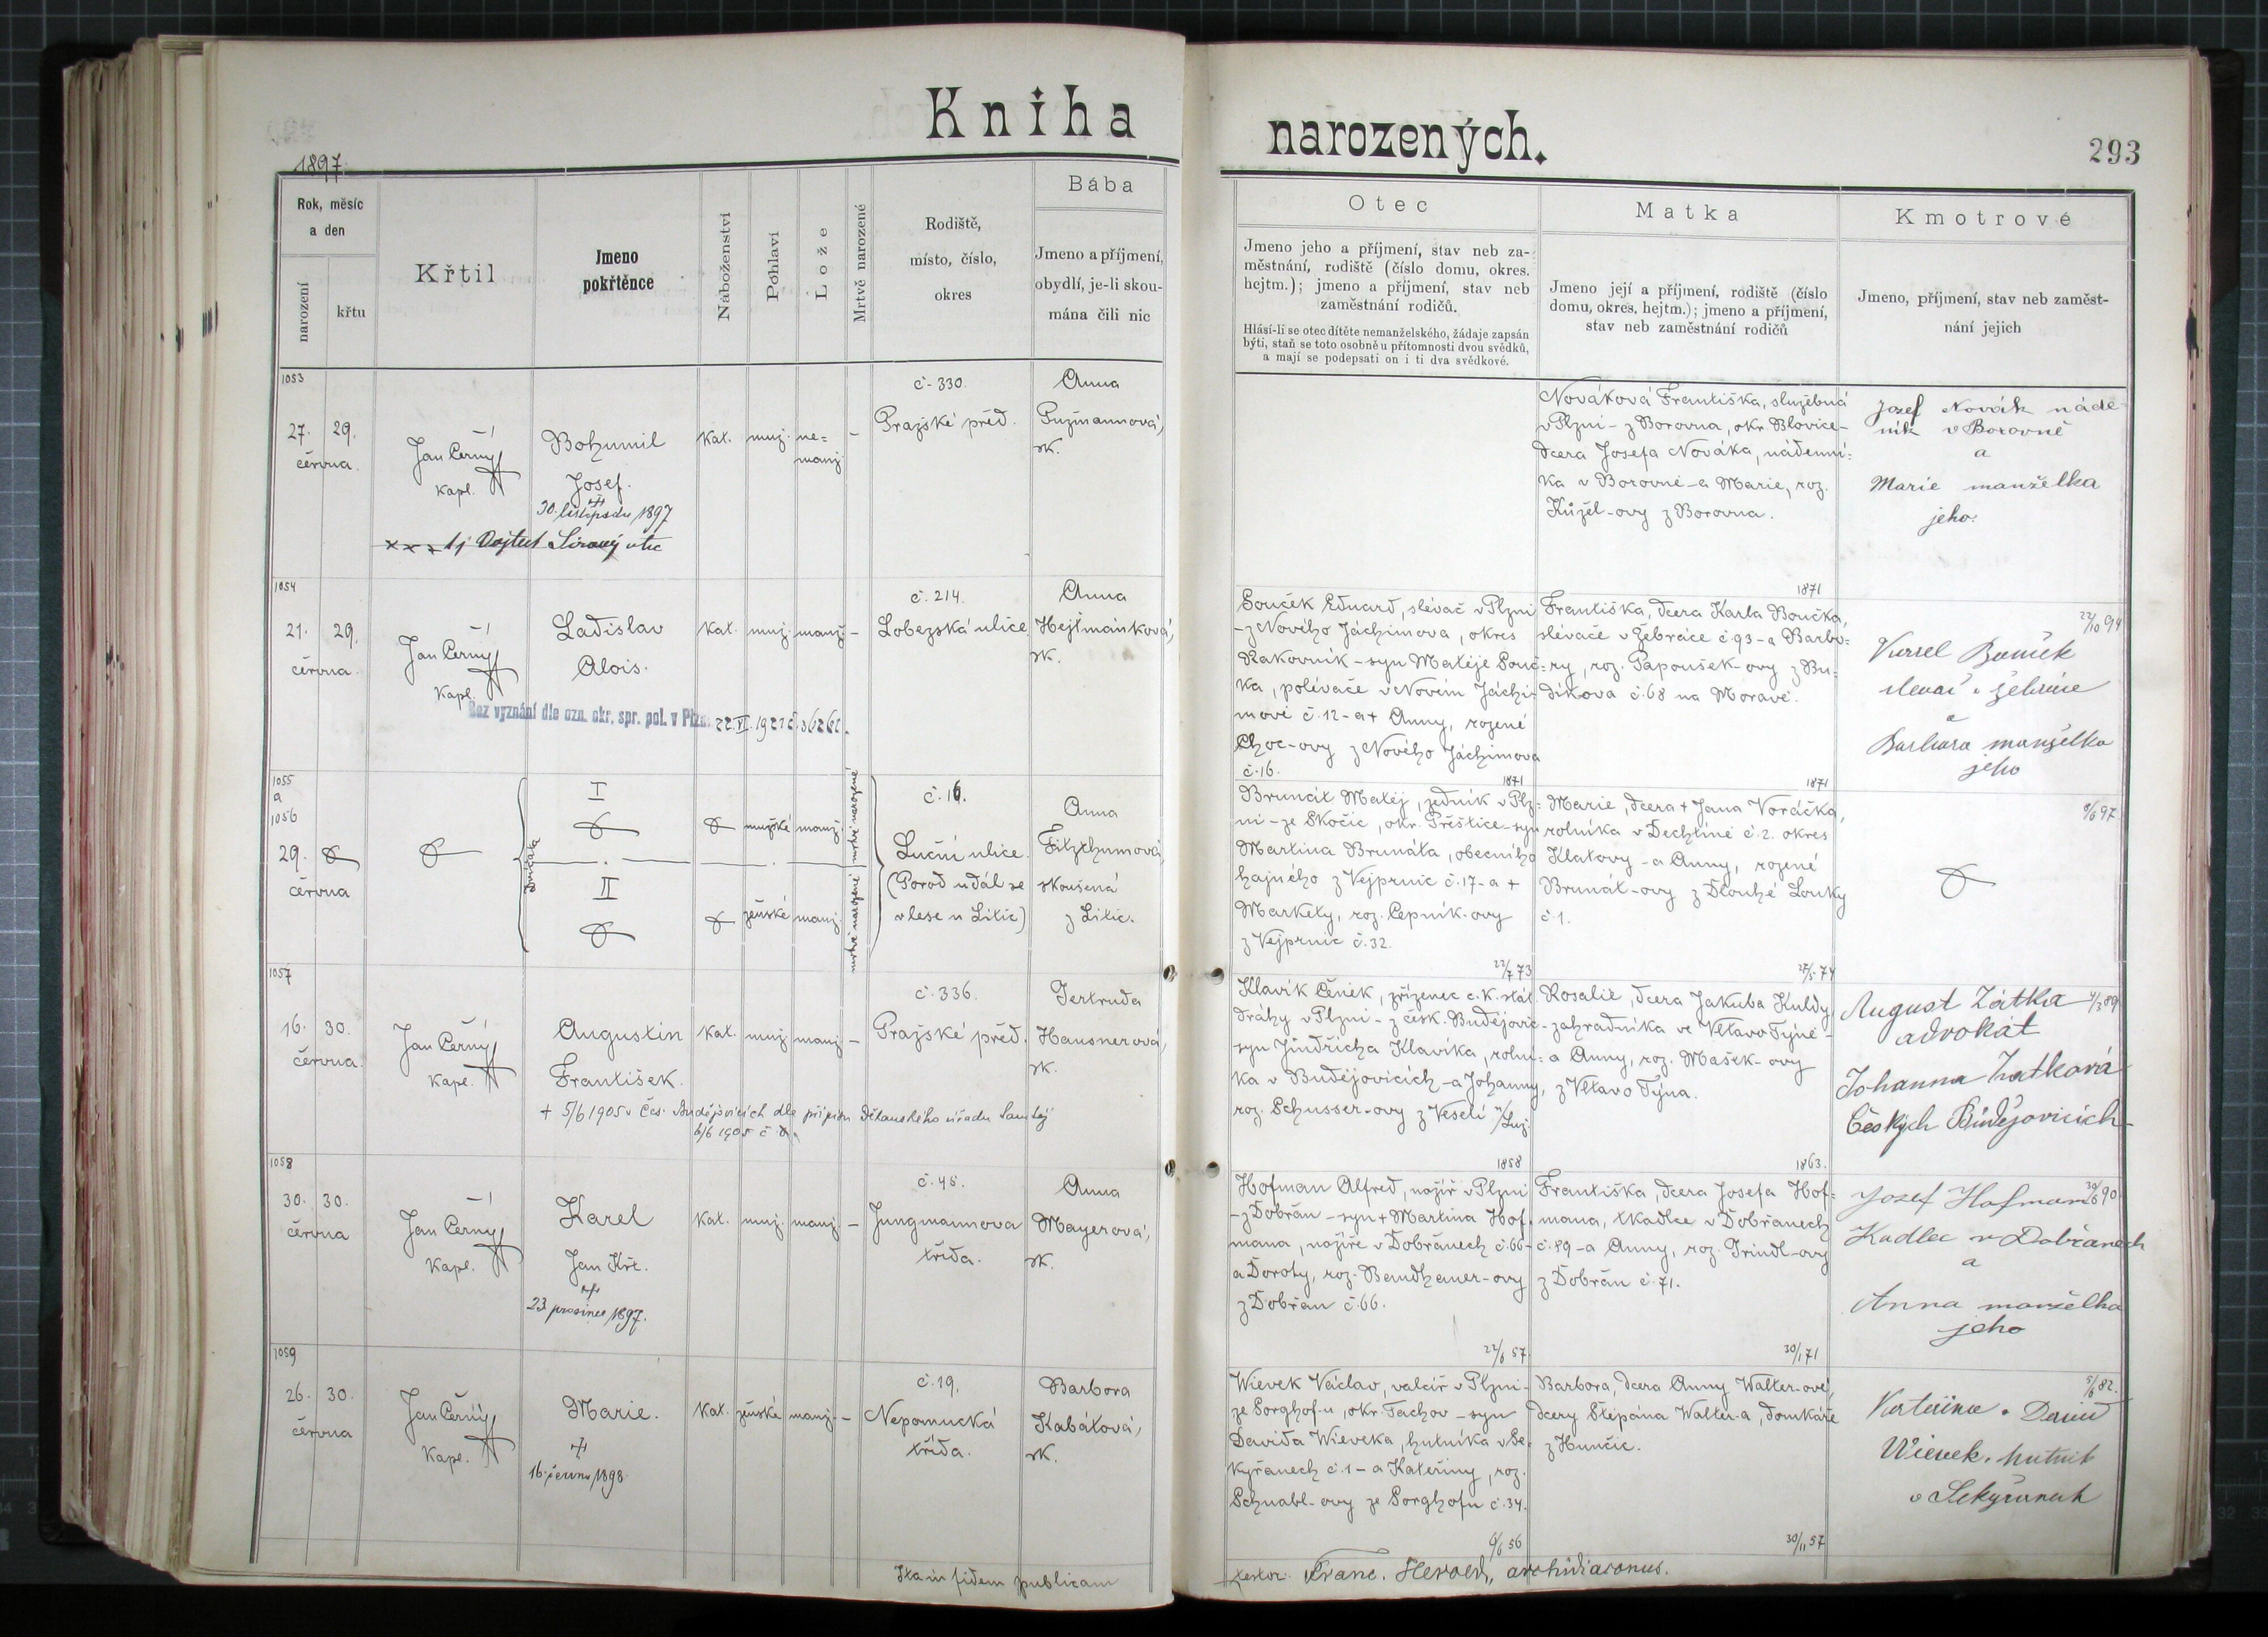 Kniha narozených.
293
1897
Rok, měsíc
a den
narození
křtu
Křtil
Jmeno
pokřtěnce
Náboženství
Pohlaví
Lože
Mrtvě narozené
Rodiště,
místo, číslo,
okres
Bába
Jmeno a příjmení,
obydlí, je-li skou-
mána čili nic
Otec
Jmeno jeho a příjmení, stav neb za-
městnání, rodiště (číslo domu, okres.
hejtm.); jmeno a příjmení, stav neb
zaměstnání rodičů.
Hlásí-li se otec dítěte nemanželského, žádaje zapsán
býti, staň se toto osobně u přítomnosti dvou svědků,
a mají se podepsati on i ti dva svědkové.
Matka
Jmeno její a příjmení, rodiště (číslo
domu, okres. hejtm.); jmeno a příjmení,
stav neb zaměstnání rodičů
Kmotrové
Jmeno, příjmení, stav neb zaměst-
nání jejich
1053
27. 29.
června.
Jan Černý
kapl.
Bohumil
Josef.
30. listopadu 1897
kat. muž. ne=
manž.
–
č. 330.
Pražské před.
Anna
Pužmannová,
zk.
Nováková Františka, služebná
v Plzni – z Borovna, okr. Blovice –
dcera Josefa Nováka, nádenní=
ka v Borovně – a Marie, roz.
Kůžel-ovy z Borovna.
Jozef Novák náde
ník v Borovně
a
Marie manželka
jeho.
1054
21. 29.
června.
Jan Černý
kapl.
Ladislav
Alois.
kat. muž. manž. –
Bez vyznání dle ozn. okr. spr. pol. v Plzni 22.VI.1921
č. 214.
Lobezská ulice
Anna
Hejtmánková,
zk.
Souček Eduard, slévač v Plzni
– z Nového Jáchimova, okres
Rakovník – syn Matěje Souč=
ka, polévače v Novém Jáchi=
mově č. 12 – a + Anny, rozené
Choc-ovy z Nového Jáchimova
č. 16.
1871
1871
Františka, dcera Karla Boučka,
slévače v Žebráce č. 93 – a Barbo=
ry, roz. Papoušek-ovy z Bu=
díkova č. 68 na Moravě.
1871
22/10 94
Karel Bouček
a
Barbara manželka
jeho
1055
a
1056
29.
června
dvojčata
I
mužské manž.
II
ženské manž.
mrtvě narozené mrtvě narozené
č. 16.
Luční ulice.
(Porod udál se
v lese u Litic)
Anna
Fitzthumová,
zkoušená
z Litic.
Brunát Matěj, zedník v Plz=
ni – ze Skočic, okr. Přeštice – syn
Martina Brunáta, obecního
hajného z Vejprnic č. 17 – a +
Markety, roz. Cepník-ovy
z Vejprnic č. 32.
22/7 73
Marie, dcera + Jana Voráčka,
rolníka v Dechtíně č. 2. okres
Klatovy – a Anny, rozené
Brunát-ovy z Dlouhé Louky
č. 1.
27/5 74
8/6 97.
1057
16. 30.
června.
Jan Černý
kapl.
Augustin
František.
kat. muž. manž. –
+ 5/6 1905 v Čes. Budějovicích dle přípisu děkanského úřadu
6/6 1905
č. 336.
Pražské před.
Gertruda
Hausnerová,
zk.
Klavík Čeněk, zřízenec c. k. stát.
dráhy v Plzni – z česk. Budějovic –
syn Jindřicha Klavíka, rolní=
ka v Budějovicích – a Johanny,
roz. Schusser-ovy z Veselí n/Luž.
1858
Rosalie, dcera Jakuba Kuldy,
zahradníka ve Vltavo Týně –
a Anny, roz. Mašek-ovy
z Vltavo Týna.
1863.
4/3 89
August Zátka
advokát
Johanna Zátková
Českých Budějovicích
1058
30. 30.
června
Jan Černý
kapl.
Karel
Jan Křt.
23 prosince 1897.
kat. muž. manž. –
č. 45.
Jungmannova
třída.
Anna
Mayerová,
zk.
Hofman Alfred, nožíř v Plzni
– z Dobřan – syn + Martina Hof=
mana, nožíře v Dobřanech č. 66 –
a Doroty, roz. Bendhauer-ovy
z Dobřan č. 66.
22/6 57
Františka, dcera Josefa Hof=
mana, tkadlce v Dobřanech
č. 89 – a Anny, roz. Grindl-ovy
z Dobřan č. 71.
30/1 71
30/6 90
Josef Hofman
Kadlec v Dobřanech
a
Anna manželka
jeho
1059
26. 30.
června
Jan Černý
kapl.
Marie.
16. června 1898
kat. ženské manž. –
č. 19.
Nepomucká
třída.
Barbora
Kabátová,
zk.
Wievek Václav, valcíř v Plzni –
ze Sorghof-u, okr. Tachov – syn
Davida Wieveka, hutníka v Se=
kyřanech č. 1 – a Kateřiny, roz.
Schnabl-ovy ze Sorghofu č. 34.
6/6 56
Barbora, dcera Anny Walter-ové,
dcery Štěpána Walter-a, domkáře
z Hunčic.
30/11 57
5/6 82.
Kateřina a David
Wievek. hutník
v Sekyřanech
Ita in fidem publicam
testor Franc. Herold, archidiaconus.